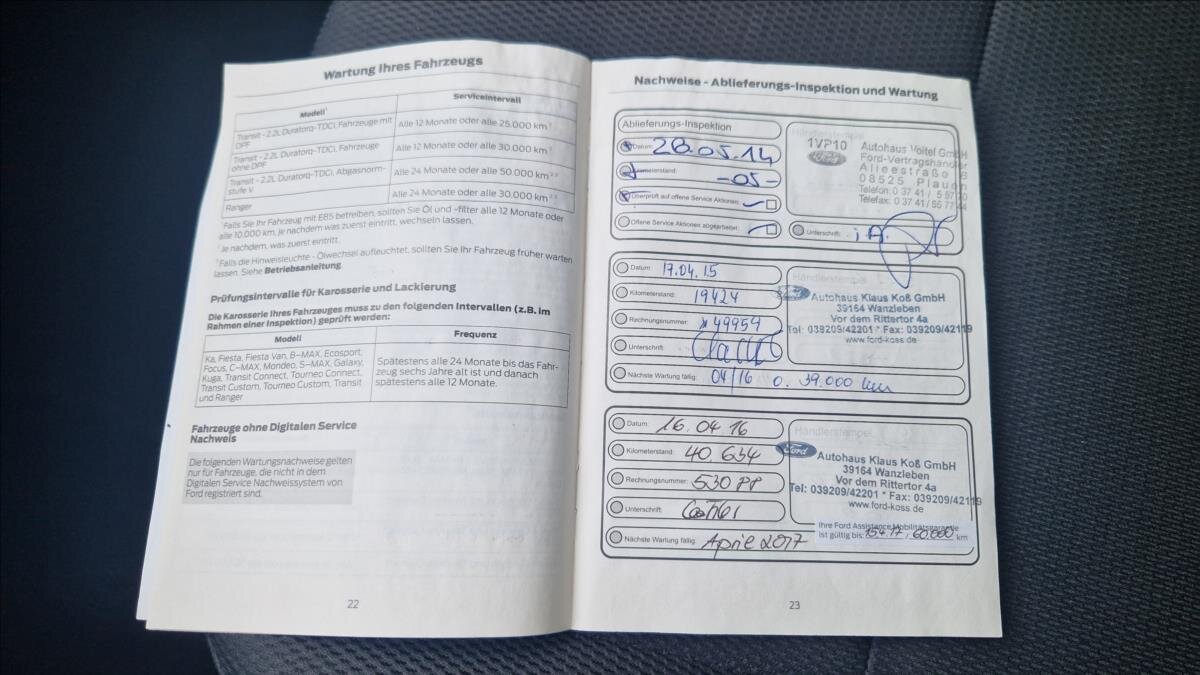 Wartung Ihres Fahrzeugs
Modell¹ Serviceintervall
Transit - 2.2L Duratorq-TDCi, Fahrzeuge mit
DPF
Alle 12 Monate oder alle 25.000 km
Transit - 2.2L Duratorq-TDCi, Fahrzeuge
ohne DPF
Alle 12 Monate oder alle 30.000 km
Transit - 2.2L Duratorq-TDCi, Abgasnorm-
stufe V
Alle 24 Monate oder alle 50.000 km
Ranger Alle 24 Monate oder alle 30.000 km
Falls Sie Ihr Fahrzeug mit E85 betreiben, sollten Sie Öl und -filter alle 12 Monate oder
alle 10.000 km, je nachdem was zuerst eintritt, wechseln lassen.
Je nachdem, was zuerst eintritt.
Falls die Hinweisleuchte - Ölwechsel aufleuchtet, sollten Sie Ihr Fahrzeug früher warten
lassen. Siehe Betriebsanleitung.
Prüfungsintervalle für Karosserie und Lackierung
Die Karosserie Ihres Fahrzeuges muss zu den folgenden Intervallen (z.B. im
Rahmen einer Inspektion) geprüft werden:
Modell Frequenz
Ka, Fiesta, Fiesta Van, B–MAX, Ecosport,
Focus, C–MAX, Mondeo, S–MAX, Galaxy,
Kuga, Transit Connect, Tourneo Connect,
Transit Custom, Tourneo Custom, Transit
und Ranger
Spätestens alle 24 Monate bis das Fahr-
zeug sechs Jahre alt ist und danach
spätestens alle 12 Monate.
Fahrzeuge ohne Digitalen Service
Nachweis
Die folgenden Wartungsnachweise gelten
nur für Fahrzeuge, die nicht in dem
Digitalen Service Nachweissystem von
Ford registriert sind.
22
Nachweise - Ablieferungs-Inspektion und Wartung
Ablieferungs-Inspektion
Datum: 28.05.14
Kilometerstand: -05-
Überprüft auf offene Service Aktionen:
Offene Service Aktionen abgearbeitet:
Händlerstempel
1VP10
Ford
Autohaus Voitel GmbH
Ford-Vertragshändler
Alleestraße 8
08525 Plauen
Telefon: 0 37 41 /
Telefax: 0 37 41 / 55 77 44
Unterschrift: i.A.
Datum: 17.04.15
Kilometerstand: 19424
Rechnungsnummer: 49954
Unterschrift:
Nächste Wartung fällig: 04/16 o. 39.000 km
Händlerstempel
Ford
Autohaus Klaus Koß GmbH
39164 Wanzleben
Vor dem Rittertor 4a
Tel: 039209/42201 * Fax: 039209/42119
www.ford-koss.de
Datum: 16.04.16
Kilometerstand: 40 634
Rechnungsnummer:
Unterschrift:
Nächste Wartung fällig: April 2017
Händlerstempel
Ford
Autohaus Klaus Koß GmbH
39164 Wanzleben
Vor dem Rittertor 4a
Tel: 039209/42201 * Fax: 039209/42119
www.ford-koss.de
Ihre Ford Assistance Mobilitätsgarantie
ist gültig bis: 15.4.17, 60.000 km
23